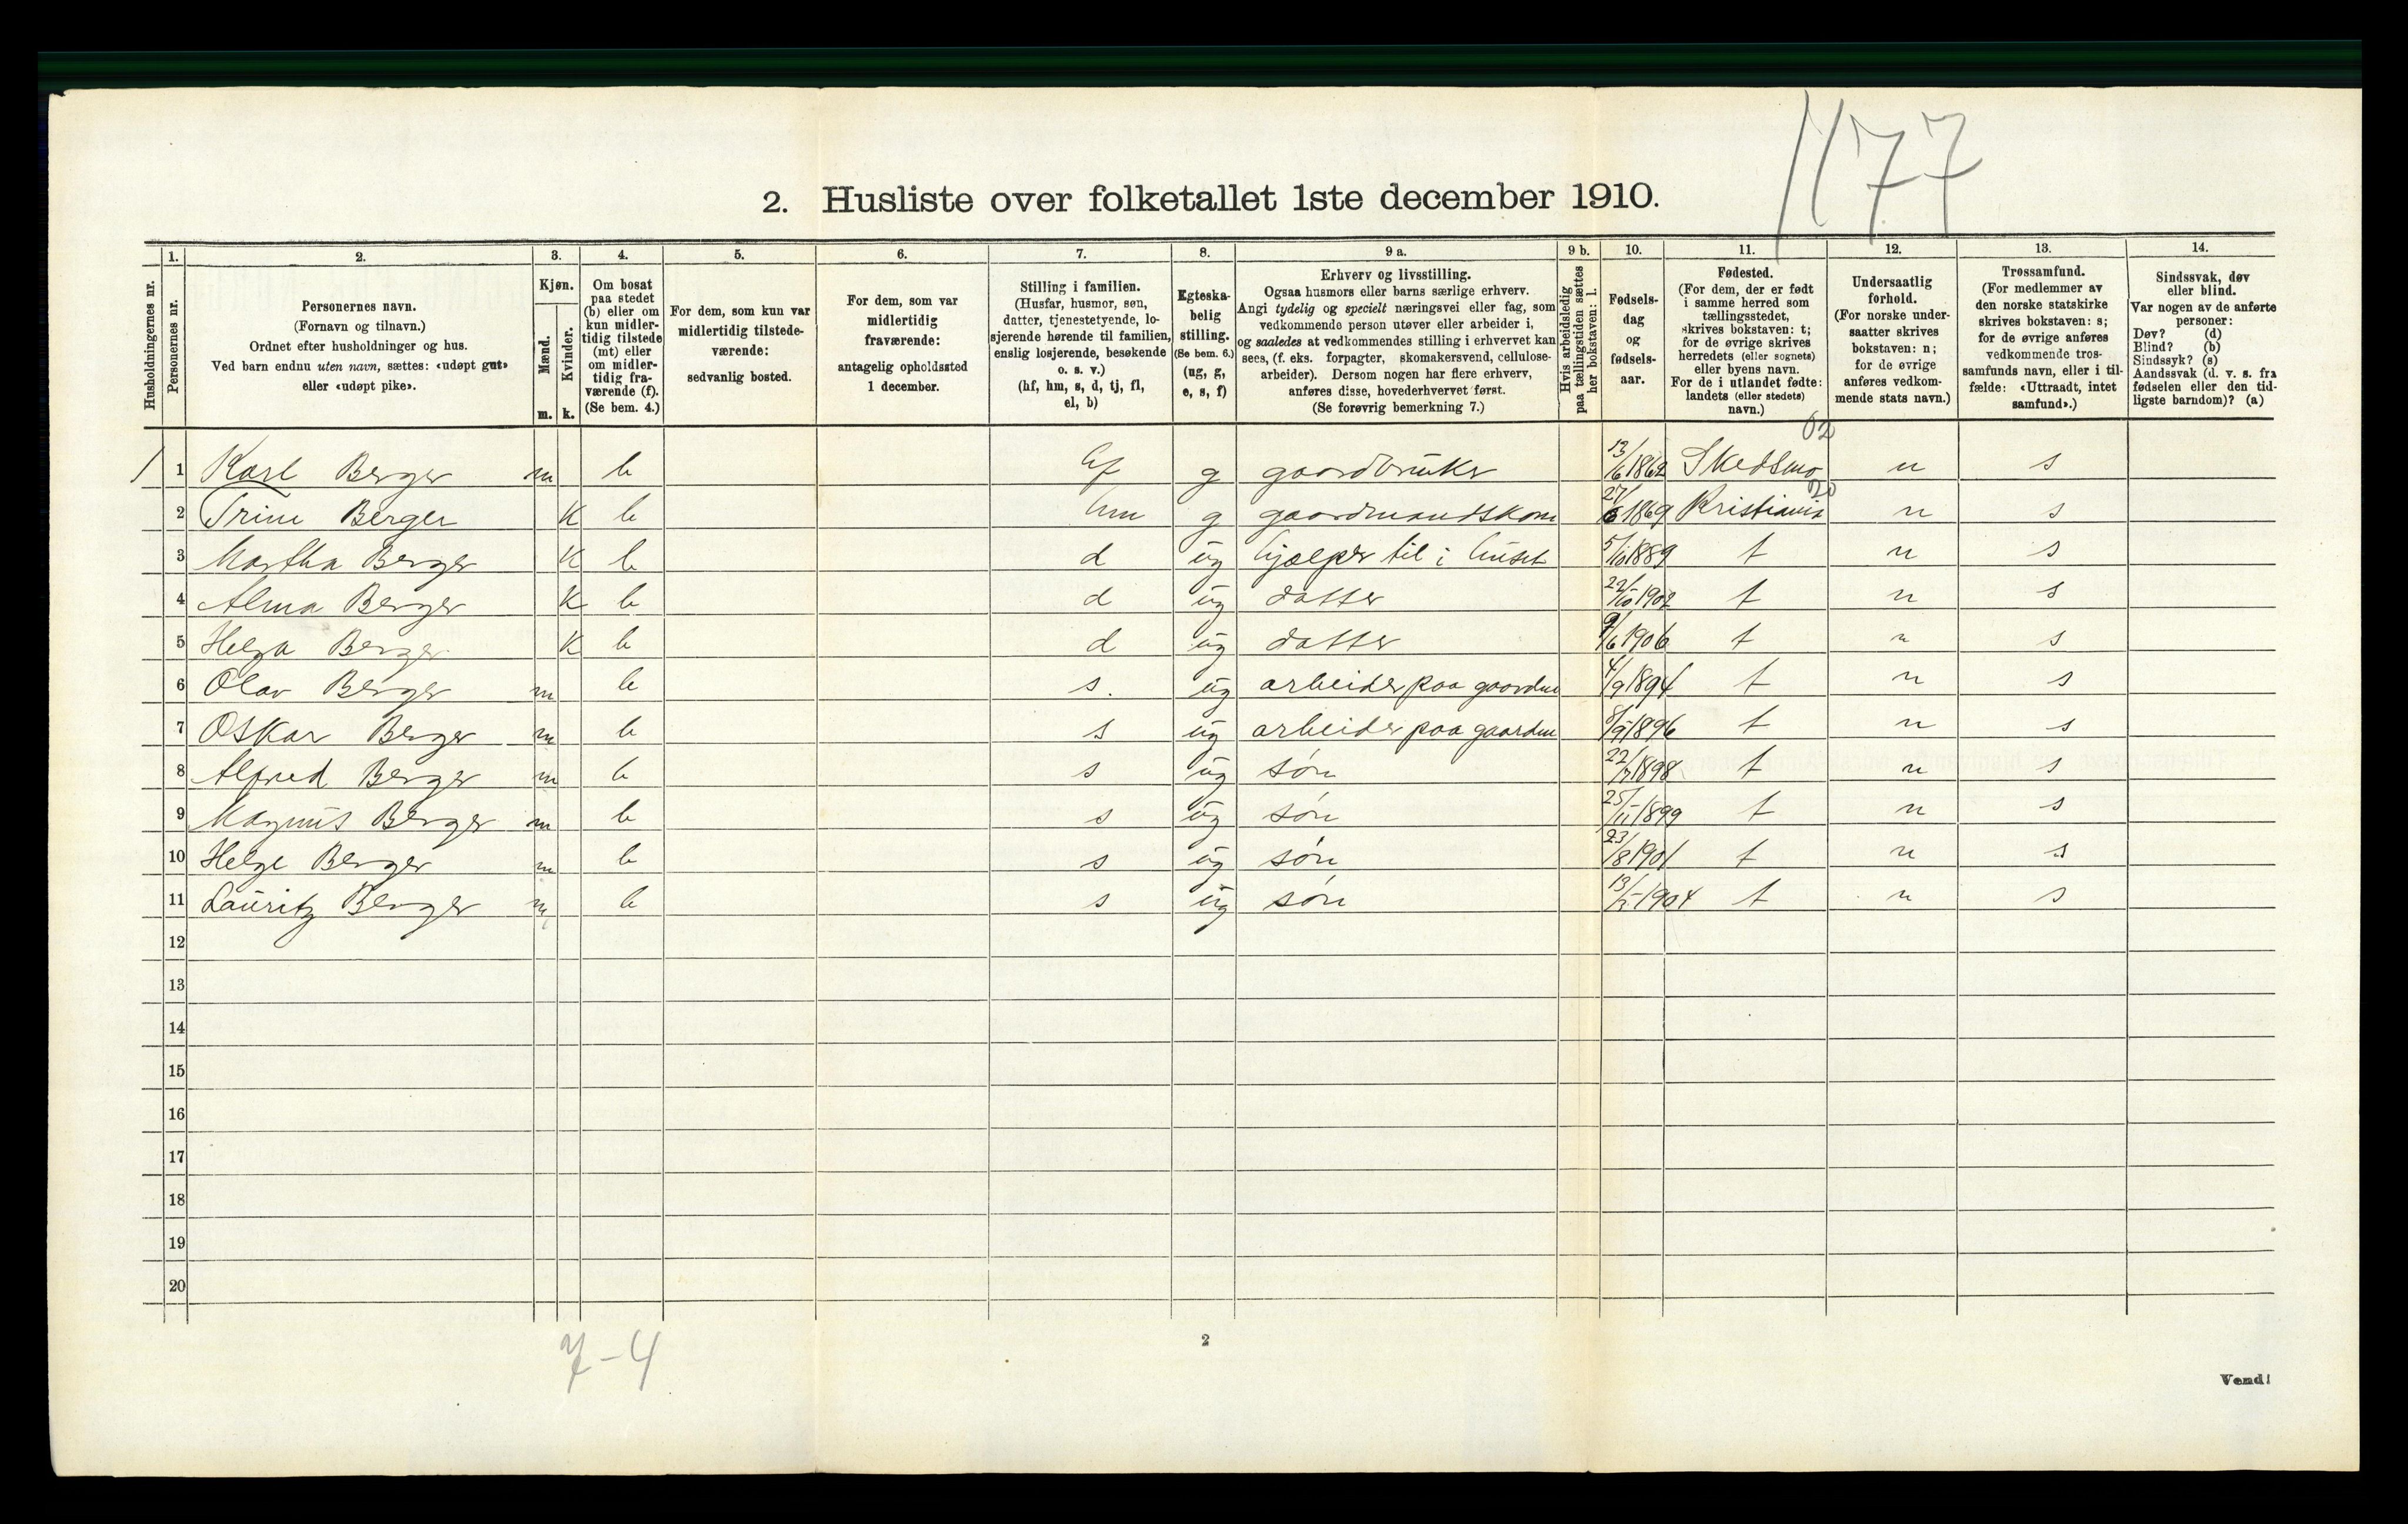 1177
2. Husliste over folketallet 1ste december 1910.
Husholdningernes nr.
1. Personernes nr.
2. Personernes navn. (Fornavn og tilnavn.) Ordnet efter husholdninger og hus. Ved barn endnu uten navn, sættes: «udøpt gut» eller «udøpt pike».
3. Kjøn. Mænd. m. Kvinder. k.
4. Om bosat paa stedet (b) eller om kun midlertidig tilstede (mt) eller om midlertidig fraværende (f). (Se bem. 4.)
5. For dem, som kun var midlertidig tilstedeværende: sedvanlig bosted.
6. For dem, som var midlertidig fraværende: antagelig opholdssted 1 december.
7. Stilling i familien. (Husfar, husmor, søn, datter, tjenestetyende, losjerende hørende til familien, enslig losjerende, besøkende o. s. v.) (hf, hm, s, d, tj, fl, el, b)
8. Egteskabelig stilling. (Se bem. 6.) (ug, g, e, s, f)
9 a. Erhverv og livsstilling. Ogsaa husmors eller barns særlige erhverv. Angi tydelig og specielt næringsvei eller fag, som vedkommende person utøver eller arbeider i, og saaledes at vedkommendes stilling i erhvervet kan sees, (f. eks. forpagter, skomakersvend, cellulosearbeider). Dersom nogen har flere erhverv, anføres disse, hovederhvervet først. (Se forøvrig bemerkning 7.)
9 b. Hvis arbeidsledig paa tællingstiden sættes her bokstaven: l.
10. Fødselsdag og fødselsaar.
11. Fødested. (For dem, der er født i samme herred som tællingsstedet, skrives bokstaven: t; for de øvrige skrives herredets (eller sognets) eller byens navn. For de i utlandet fødte: landets (eller stedets) navn.)
12. Undersaatlig forhold. (For norske undersaatter skrives bokstaven: n; for de øvrige anføres vedkommende stats navn.)
13. Trossamfund. (For medlemmer av den norske statskirke skrives bokstaven: s; for de øvrige anføres vedkommende trossamfunds navn, eller i tilfælde: «Uttraadt, intet samfund».)
14. Sindssvak, døv eller blind. Var nogen av de anførte personer: Døv? (d) Blind? (b) Sindssyk? (s) Aandssvak (d. v. s. fra fødselen eller den tidligste barndom)? (a)
02
1 1 Karl Berger m b hf g gaardbruker 13/6 1862 Skedsmo n s
20
2 Trine Berger K b hm g gaardmandskone 27/6 1869 Kristiania n s
3 Martha Berger K b d ug hjælper til i huset 5/10 1889 t n s
4 Alma Berger K b d ug datter 22/10 1902 t n s
5 Helga Berger K b d ug datter 9/6 1906 t n s
6 Olav Berger m b s. ug arbeider paa gaarden 4/9 1894 t n s
7 Oskar Berger m b s ug arbeider paa gaarden 1896 t n s
8 Alfred Berger m b s ug søn 1898 t n s
9 Magnus Berger m b s ug søn 25/11 1899 t n s
10 Helge Berger m b s ug søn 23/8 1901 t n s
11 Lauritz Berger m b s ug søn 1904 t n s
12
13
14
15
16
17
18
19
20
7-4
2
Vend!